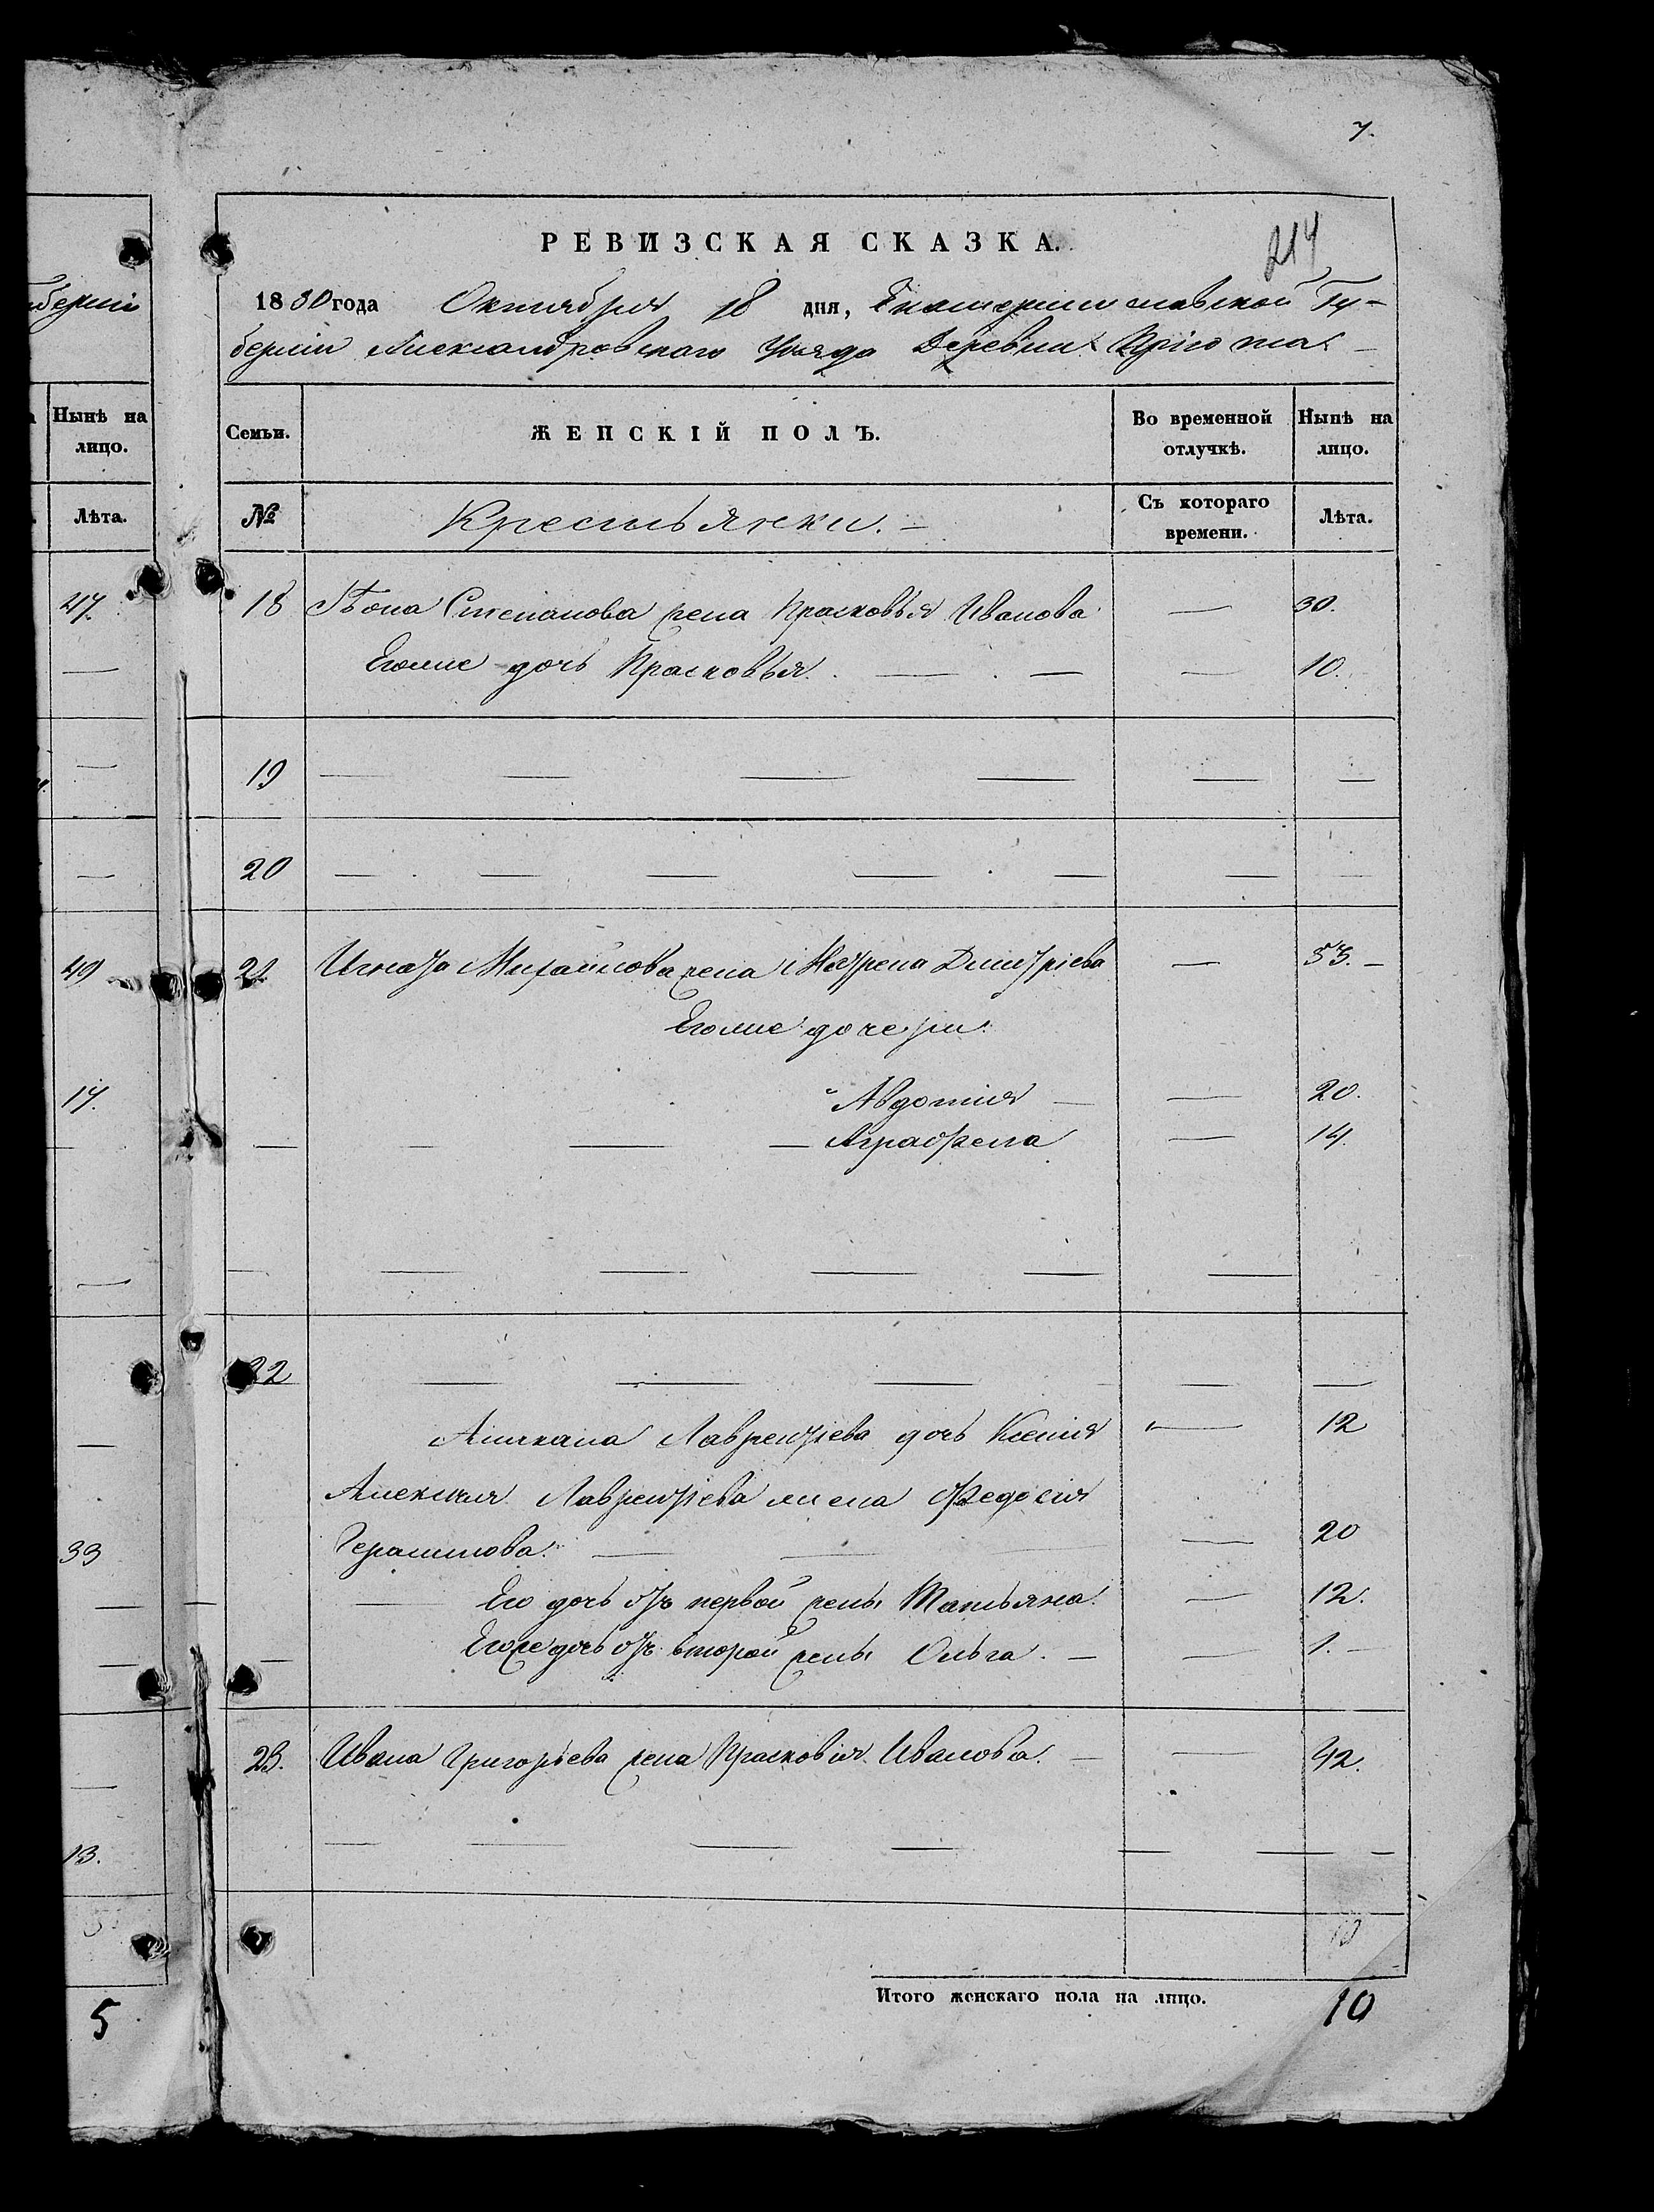 7.
РЕВИЗСКАЯ СКАЗКА.
214
1850 года Октября 18 дня, Екатеринославской Гу-
берніи Александровскаго Уѣзда Деревни
Нынѣ на лицо.
Лѣта.
47.
49
17.
33
13.
5
Семьи.
ЖЕНСКІЙ ПОЛЪ.
Во временной отлучкѣ.
Нынѣ на лицо.
№
Крестьянки. —
Съ котораго времени.
Лѣта.
18 Степанова жена Прасковья Иванова — 30.
Егоже дочь Прасковья. — — — 10.
19 — — — — — —
20 — — — — — — —
21 Игната Михайлова жена Матрена Дмитріева — 53. —
Егоже дочери:
Авдотія — — 20.
— — — — Аграфена — 14.
— — — — — —
22 — — — — —
Лаврентіева дочь Ксенія — 12
Алексѣя Лаврентіева жена Федосія
Герасимова. — — — 20
— Его дочь отъ первой жены Татьяна. — 12.
— Егоже дочь отъ второй жены Ольга. — — 1. —
23. Ивана Григорьева жена Прасковія Иванова. — — 42.
— — — — — — —
10
Итого женскаго пола на лицо. 10